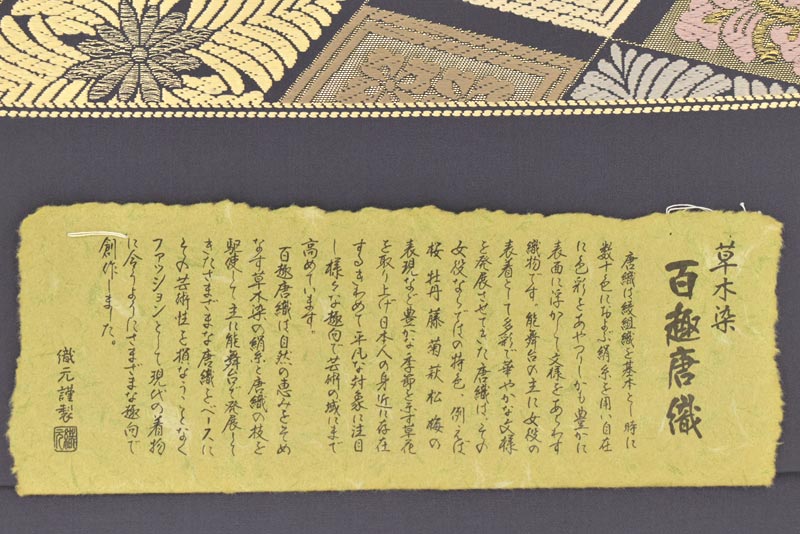 草木染
百趣唐織
唐織は綾組織を基本とし時に
数十色におよぶ絹糸を用い自在
に色彩をあやつりしかも豊かに
表面に浮かして文様をあらわす
織物です。能舞台の主に女役の
表着として多彩で華やかな文様
を発展させてきた唐織は、その
女役ならではの特色、例えば
桜 牡丹 藤 菊 萩 松 梅の
表現など豊かな季節を示す草花
を取り上げ日本人の身近に存在
するきわめて平凡な対象に注目
し様々な趣向で芸術の域にまで
高めています。
百趣唐織は自然の恵みをそめ
なす草木染の絹糸と唐織の技を
駆使して主に能舞台で発展して
きたさまざまな唐織をベースに
その芸術性を損なうことなく
ファッションとして現代の着物
に合うようにさまざまな趣向で
創作しました。
織元謹製